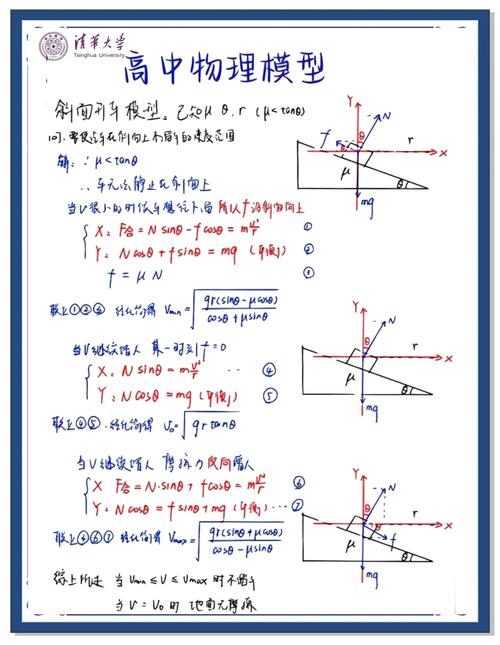 清华大学
Tsinghua University
高中物理模型
斜面开车模型。已知μ θ.r (μ<tanθ)
问.要使汽车在斜面上不滑的速度范围
解: ∵μ<tanθ
∴车无法静止在斜面上
当V很小的时候车想往下滑 所以f沿斜面向上
X: F合=Nsinθ-fcosθ=mv²/r ①
Y: Ncosθ+fsinθ=mg (平衡) ②
f=μN ③
联立①②③ 经化简得 Vmin=√(gr(sinθ-μcosθ)/(cosθ+μsinθ))
当V继续增大 某一时刻f=0
X: Nsinθ=mv²/r ... ④
Y: Ncosθ=mg (平衡) ⑤
联立④⑤.经化简得 V₀=√(grtanθ)
当V继续增大 摩擦力反向增大
X F合=N·sinθ+fcosθ=mv²/r ⑥
Y: Ncosθ=fsinθ+mg (平衡)... ⑦
联立⑥⑦ 经化简得 Vmax=√(gr(sinθ+μcosθ)/(cosθ-μsinθ))
综上所述 当Vmin≤V≤Vmax时不滑
当V=V₀时 地面无摩擦
Y
N
f
θ
θ
r
X
μ
θ
mg
Y
N
θ
r
X
μ
θ
mg
Y
N
θ
r
X
θ
μ
f
θ
mg